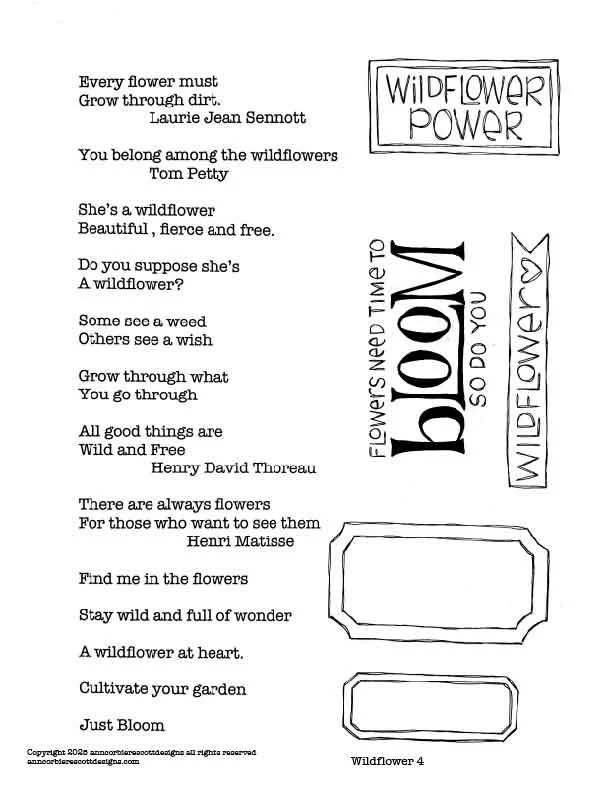 Every flower must
Grow through dirt.
Laurie Jean Sennott
You belong among the wildflowers
Tom Petty
She's a wildflower
Beautiful , fierce and free.
Do you suppose she's
A wildflower?
Some see a weed
Others see a wish
Grow through what
You go through
All good things are
Wild and Free
Henry David Thoreau
There are always flowers
For those who want to see them
Henri Matisse
Find me in the flowers
Stay wild and full of wonder
A wildflower at heart.
Cultivate your garden
Just Bloom
WiLDFLOWeR
POWeR
FLOWeRS NeeD TiMe TO
blooM
SO DO YOU
WiLDFLOWeR
Copyright 2025 anncorbierescottdesigns all rights reserved
anncorbierescottdesigns.com
Wildflower 4